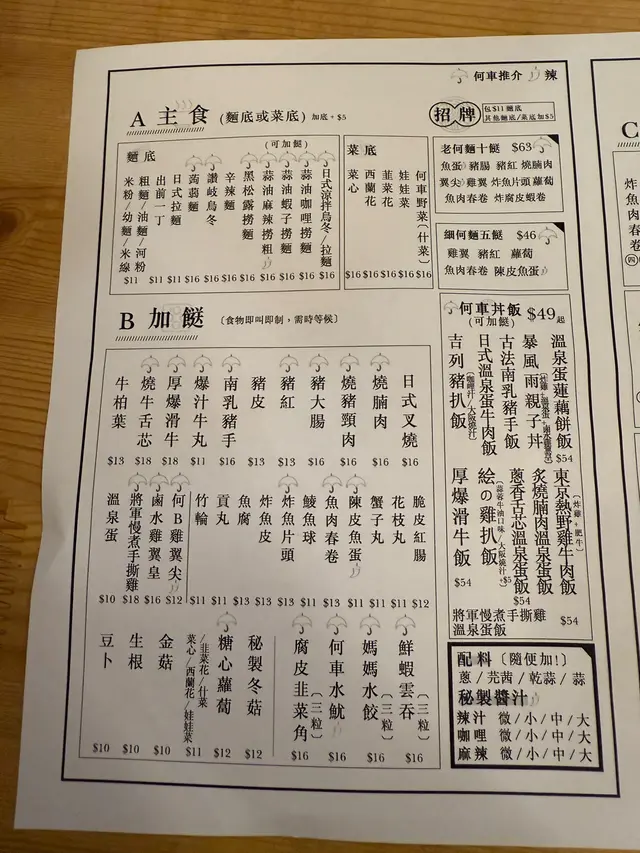 何車推介 辣
A 主食 (麵底或菜底) 加底 + $5
招牌
包$11麵底
其他麵底/菜底加$5
麵底
(可加餸)
日式涼拌烏冬/拉麵 $16
蒜油咖哩撈麵 $16
蒜油蝦子撈麵 $16
蒜油麻辣撈粗 $16
黑松露撈麵 $16
辛辣麵 $16
讚岐烏冬 $16
蒟蒻麵 $16
日式拉麵 $11
出前一丁 $11
粗麵/油麵/河粉
米粉/幼麵/米線 $11
菜底
何車野菜〔什菜〕 $16
娃娃菜 $16
韮菜花 $16
西蘭花 $16
菜心 $16
老何麵十餸 $63
魚蛋 豬腸 豬紅 燒腩肉
翼尖 雞翼 炸魚片頭 蘿蔔
魚肉春卷 炸腐皮蝦卷
細何麵五餸 $46
雞翼 豬紅 蘿蔔
魚肉春卷 陳皮魚蛋
B 加餸 〔食物即叫即制，需時等候〕
日式叉燒 $16
燒腩肉 $16
燒豬頸肉 $16
豬大腸 $16
豬紅 $13
豬皮 $13
南乳豬手 $16
爆汁牛丸 $11
厚爆滑牛 $18
燒牛舌芯 $18
牛柏葉 $13
脆皮紅腸 $12
花枝丸 $11
蟹子丸 $11
陳皮魚蛋 $11
魚肉春卷 $13
鯪魚球 $11
炸魚片頭 $13
炸魚皮 $13
魚腐 $13
貢丸 $11
竹輪 $11
何B雞翼尖 $12
鹵水雞翼皇 $16
將軍慢煮手撕雞 $18
溫泉蛋 $10
鮮蝦雲吞〔三粒〕 $16
媽媽水餃〔三粒〕 $16
何車水魷 $16
腐皮韭菜角〔三粒〕 $16
秘製冬菇 $12
糖心蘿蔔 $12
/韭菜花/什菜
菜心/西蘭花/娃娃菜 $11
金菇 $10
生根 $10
豆卜 $10
何車丼飯 $49起
(可加餸)
溫泉蛋蓮藕餅飯 $54
暴風雨親子丼
古法南乳豬手飯
日式溫泉蛋牛肉飯
吉列豬扒飯〔咖哩汁/大阪燒汁〕
東京熱野雞牛肉飯〔炸雞+肥牛〕
炙燒腩肉溫泉蛋飯
蔥香舌芯溫泉蛋飯 $54
絵の雞扒飯〔蒜蓉牛油口味/大阪燒汁+$5〕
厚爆滑牛飯 $54
將軍慢煮手撕雞
溫泉蛋飯 $54
配料〔隨便加!〕
蔥/芫茜/乾蒜/蒜
秘製醬汁
辣汁 微/小/中/大
咖哩 微/小/中/大
麻辣 微/小/中/大
C